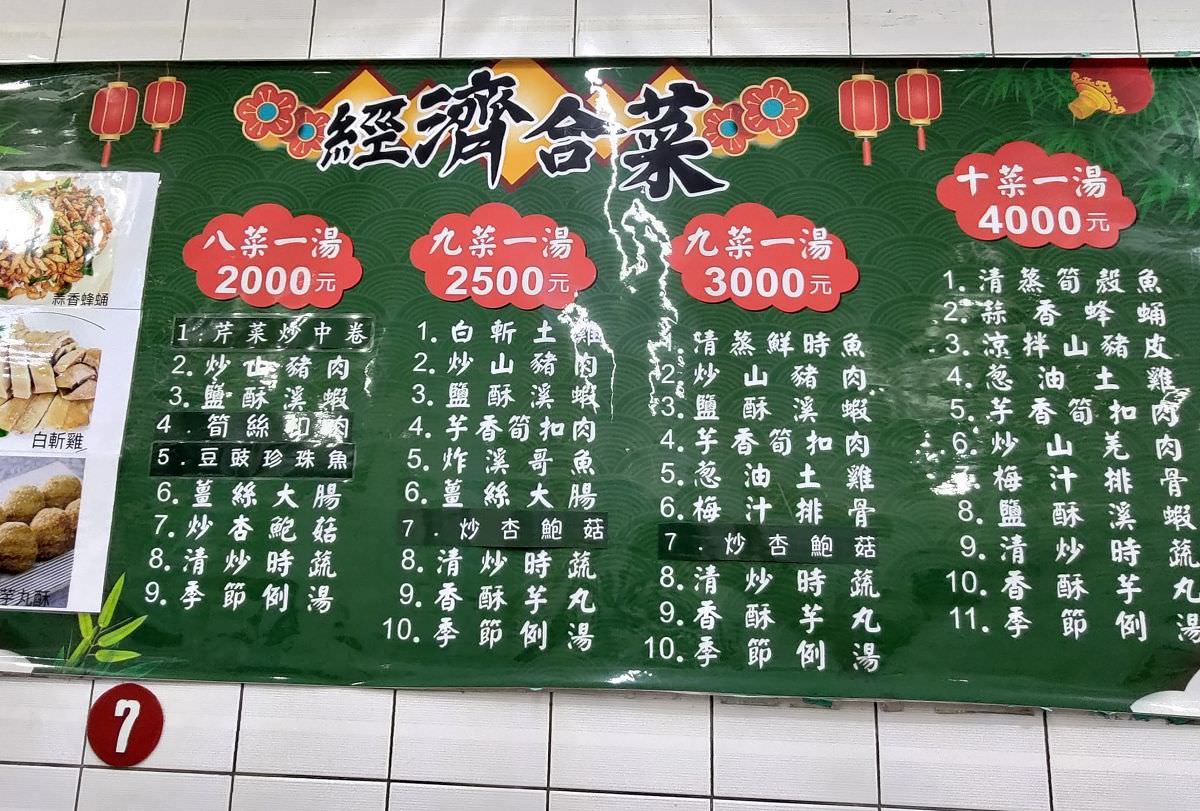 經濟合菜
蒜香蜂蛹
白斬雞
芋丸酥
八菜一湯
2000元
1.芹菜炒中卷
2.炒山豬肉
3.鹽酥溪蝦
4.筍絲扣肉
5.豆豉珍珠魚
6.薑絲大腸
7.炒杏鮑菇
8.清炒時蔬
9.季節例湯
九菜一湯
2500元
1.白斬土雞
2.炒山豬肉
3.鹽酥溪蝦
4.芋香筍扣肉
5.炸溪哥魚
6.薑絲大腸
7.炒杏鮑菇
8.清炒時蔬
9.香酥芋丸
10.季節例湯
九菜一湯
3000元
清蒸鮮時魚
2.炒山豬肉
3.鹽酥溪蝦
4.芋香筍扣肉
5.葱油土雞
6.梅汁排骨
7.炒杏鮑菇
8.清炒時蔬
9.香酥芋丸
10.季節例湯
十菜一湯
4000元
1.清蒸筍殼魚
2.蒜香蜂蛹
3.涼拌山豬皮
4.葱油土雞
5.芋香筍扣肉
6.炒山羌肉
7.梅汁排骨
8.鹽酥溪蝦
9.清炒時蔬
10.香酥芋丸
11.季節例湯
7